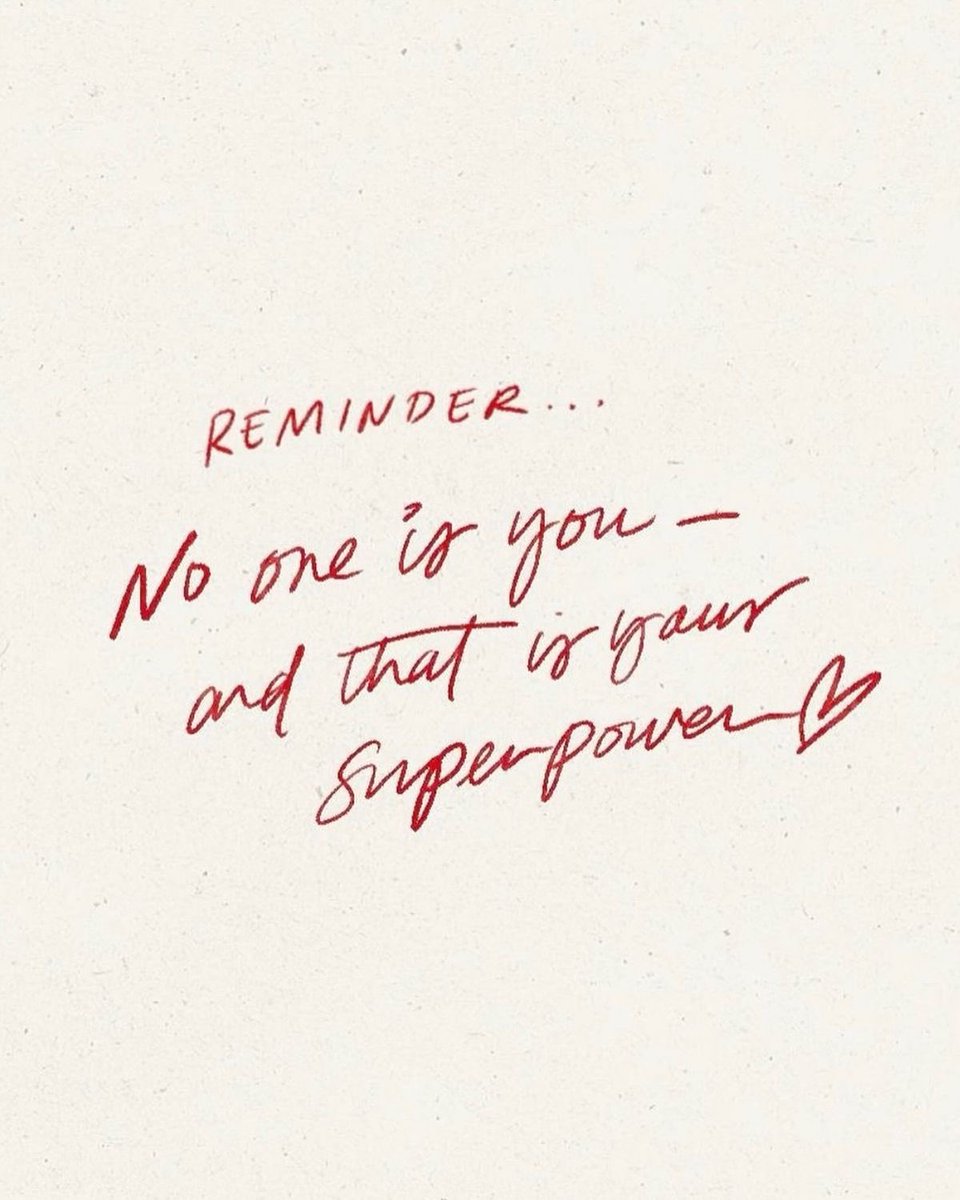 REMINDER...
No one is you —
and that is your
superpower